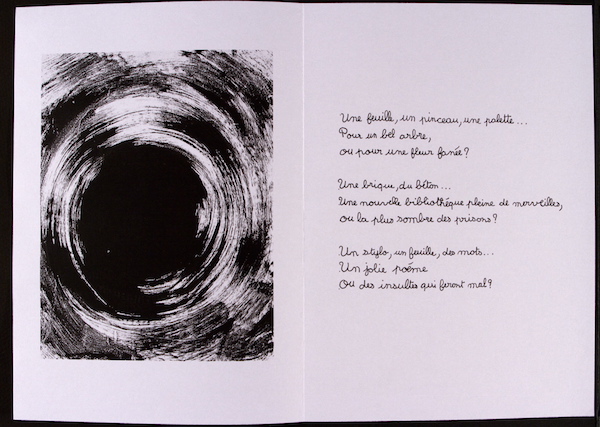 Une feuille, un pinceau, une palette...
Pour un bel arbre,
ou pour une fleur fanée?
Une brique, du béton...
Une nouvelle bibliothéque pleine de merveilles,
ou la plus sombre des prisons?
Un stylo, un feuille, des mots...
Un jolie poéme
Ou des insultes qui feront mal?